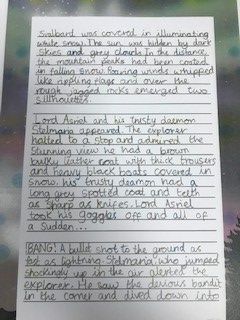 Svalbard was covered in illuminating
white snow. The sun was hidden by dark
skies and grey clouds. In the distance,
the mountain peaks had been coated
in falling snow. Roaring winds whipped
like rippling flags and over the
rough jagged rocks emerged two
silhouettes.
Lord Asriel and his trusty daemon
Stelmaria appeared. The explorer
halted to a stop and admired the
stunning view he had a brown
bulky leather coat with thick trousers
and heavy black boats covered in
Snow. his trusty deamon had a
long grey spotted coat and teeth
as sharp as knifes. Lord Asriel
took his goggles off and all of
a Sudden...
BANG! A bullet shot to the ground as
fast as lightning. Stelmaria who jumped
shockingly up in the air alerted the
explorer. He saw the devious bandit
in the corner and dived down into